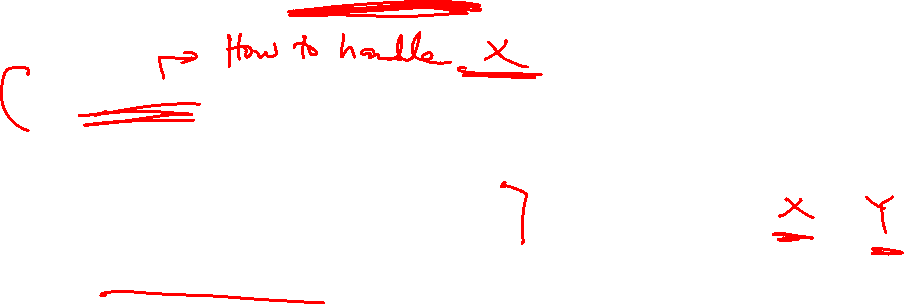 How to handle X
X Y